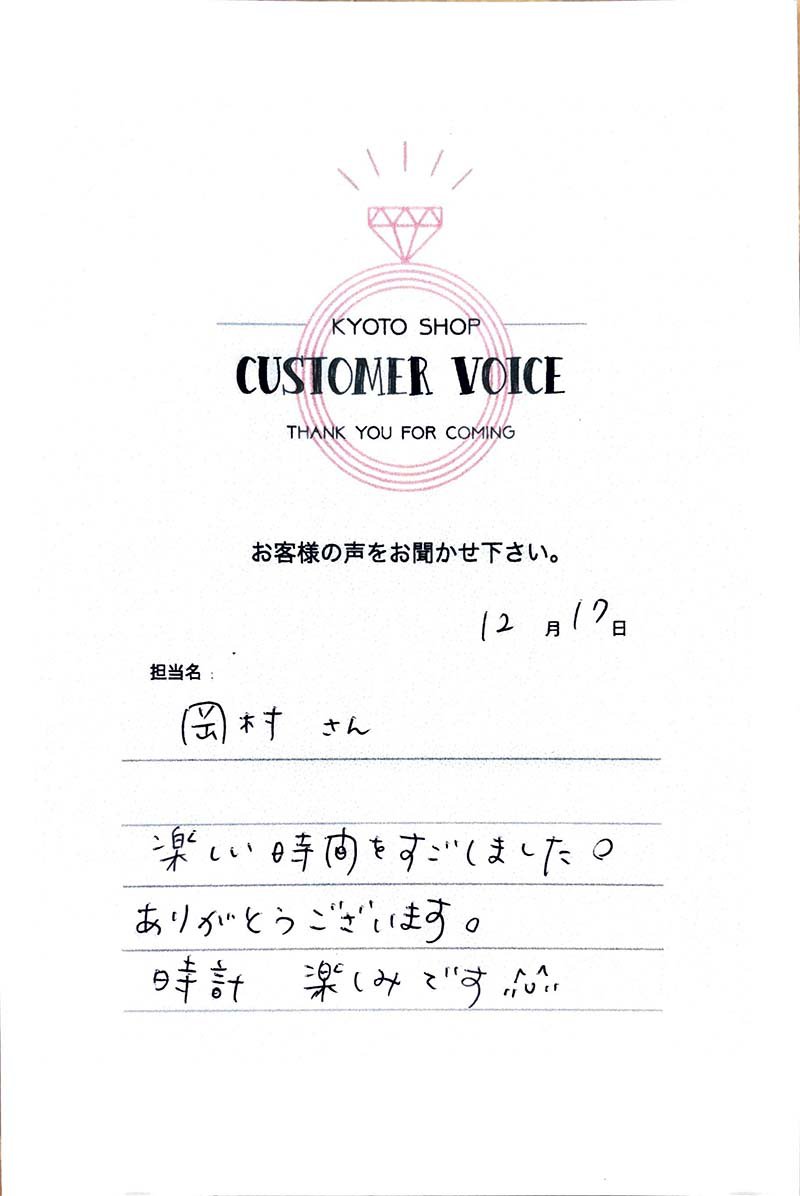 KYOTO SHOP
CUSTOMER VOICE
THANK YOU FOR COMING
お客様の声をお聞かせ下さい。
12月17日
担当名：
岡村 さん
楽しい時間をすごしました。
ありがとうございます。
時計 楽しみです ^U^